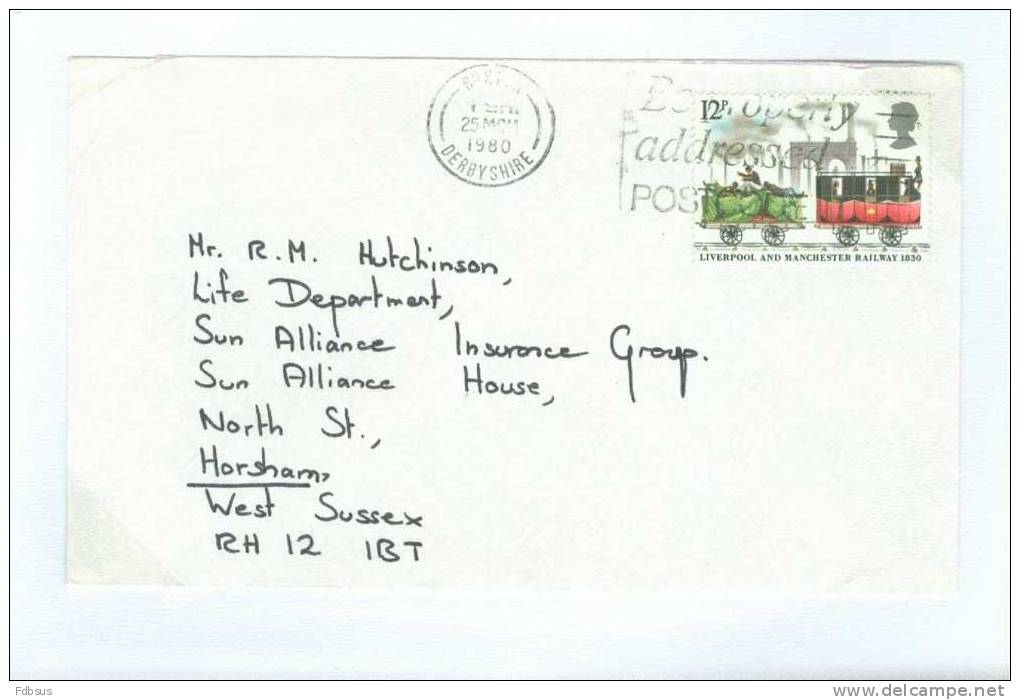 25 MCH
1980
DERBYSHIRE
properly
addressed
POST
12P
LIVERPOOL AND MANCHESTER RAILWAY 1830
Mr. R.M. Hutchinson,
Life Department,
Sun Alliance Insurance Group.
Sun Alliance House,
North St.,
Horsham,
West Sussex
RH 12 1BT
Fdbsus
www.delcampe.net